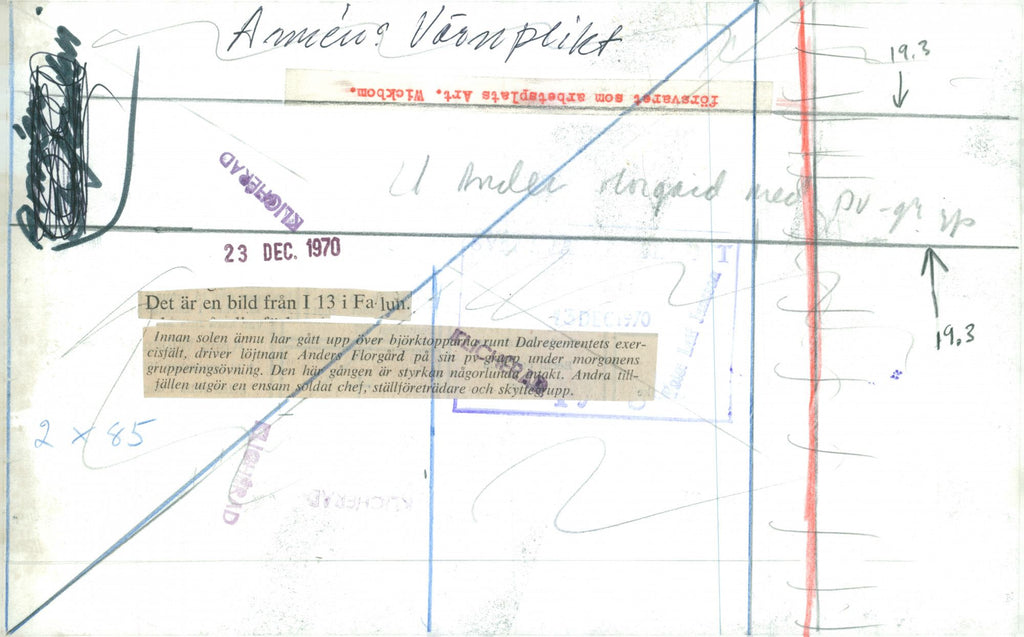 Armén: Värnplikt
19.3
försvaret som arbetsplats Art. Wickbom.
KLICHERAD
Lt Anders Florgård med pv-grupp
23 DEC. 1970
Det är en bild från I 13 i Falun.
23 DEC 1970
19.3
Innan solen ännu har gått upp över björktopparna runt Dalregementets exer-
cisfält, driver löjtnant Anders Florgård på sin pv-grupp under morgonens
grupperingsövning. Den här gången är styrkan någorlunda intakt. Andra till-
fällen utgör en ensam soldat chef, ställföreträdare och skyttegrupp.
KLICHERAD
2 x 85
KLICHERAD
KLICHERAD